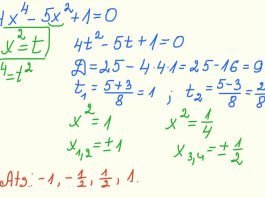 4x⁴ − 5x² + 1 = 0
x² = t
4t² − 5t + 1 = 0
⁴ = t²
D = 25 − 4·4·1 = 25 − 16 = 9
t₁ = (5+3)/8 = 1 ; t₂ = (5−3)/8 = 2/8
x² = 1
x² = 1/4
x₁,₂ = ±1
x₃,₄ = ±1/2
Ats.: −1, −1/2, 1/2, 1.